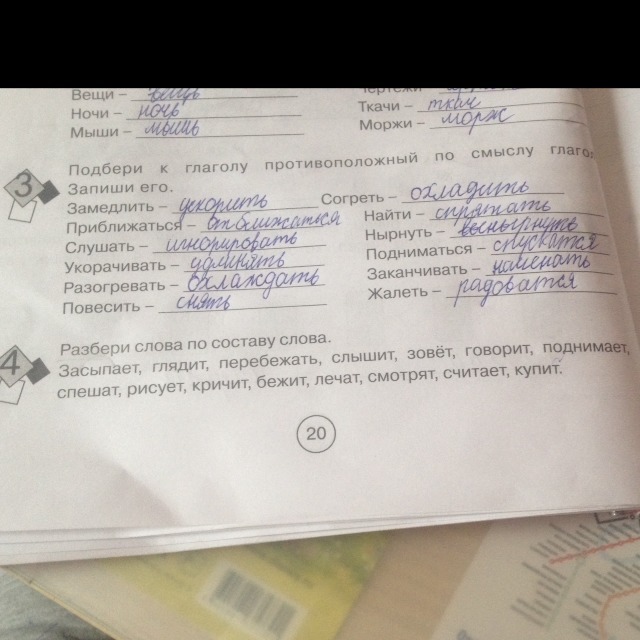 Вещи – вещь
Ночи – ночь Ткачи – ткач
Мыши – мышь Моржи – морж
3 Подбери к глаголу противоположный по смыслу глагол
Запиши его.
Замедлить – ускорить Согреть – охладить
Приближаться – отближаться Найти – спрятать
Слушать – игнорировать Нырнуть – вынырнуть
Укорачивать – удлинять Подниматься – спускатся
Разогревать – охлаждать Заканчивать – наченать
Повесить – снять Жалеть – радоватся
4 Разбери слова по составу слова.
Засыпает, глядит, перебежать, слышит, зовёт, говорит, поднимает,
спешат, рисует, кричит, бежит, лечат, смотрят, считает, купит.
20